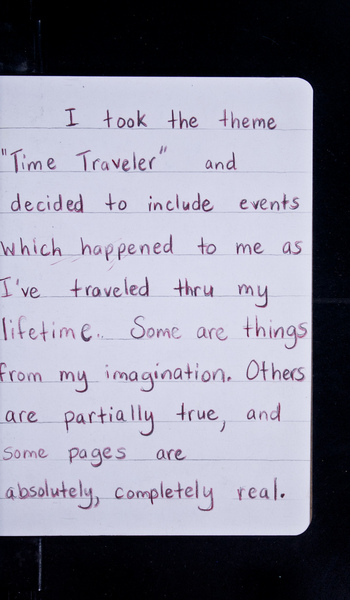 I took the theme
"Time Traveler" and
decided to include events
which happened to me as
I've traveled thru my
lifetime. Some are things
from my imagination. Others
are partially true, and
some pages are
absolutely, completely real.